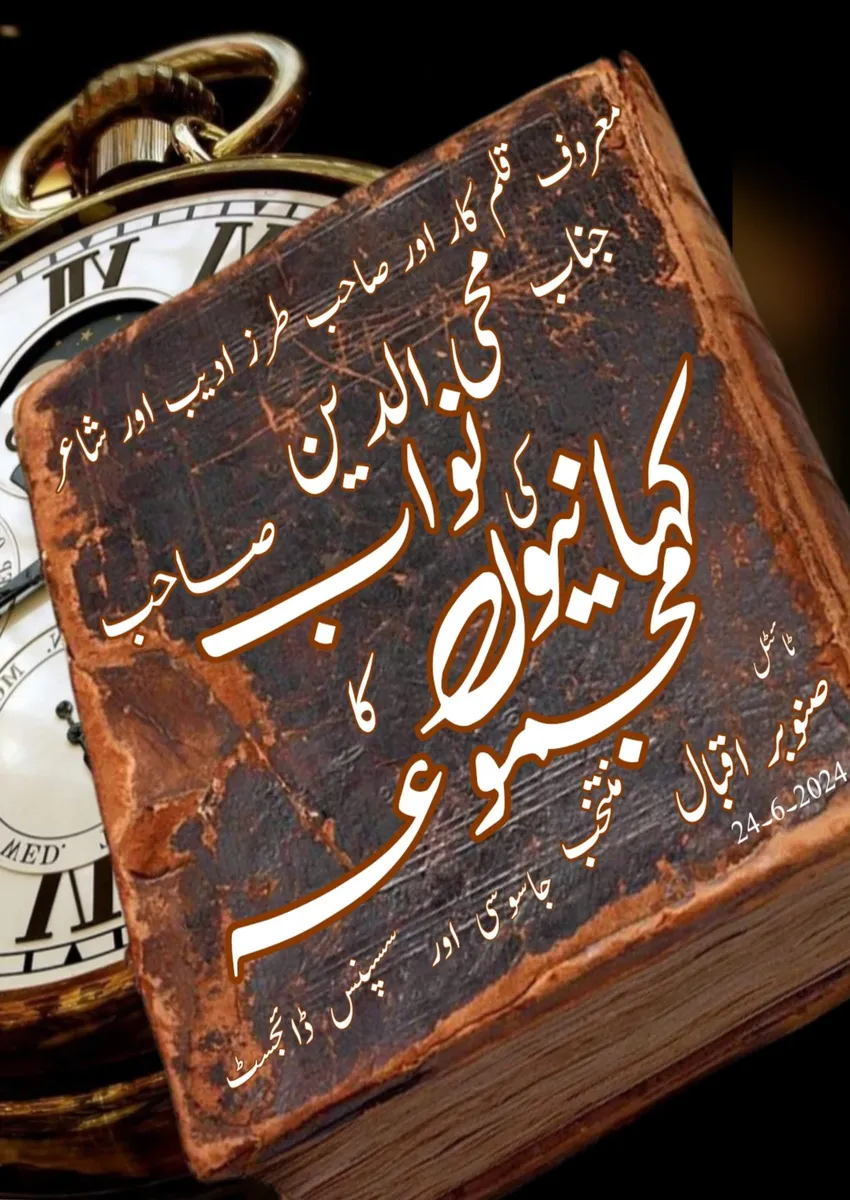 معروف قلم کار اور صاحب طرز ادیب اور شاعر
جناب محی الدین نواب صاحب
کی
کہانیوں
کا
مجموعہ
ٹائٹل
صنوبر اقبال
24_6_2024
منتخب جاسوسی اور سسپنس ڈائجسٹ
VII
VIII
WED